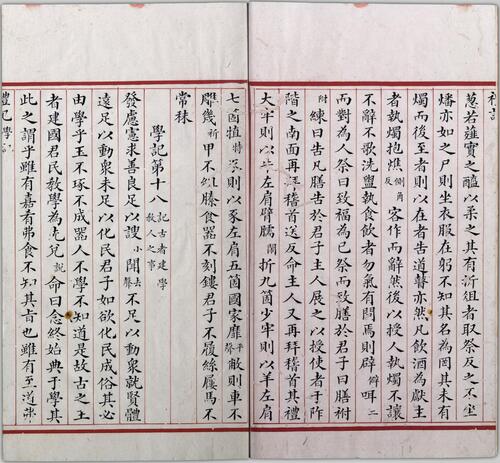 蔥若薤實之醯以柔之其有折俎者取祭反之不坐
燔亦如之尸則坐衣服在躬不知其名為罔其未有
燭而後至者則以在者告道瞽亦然凡飲酒為獻主
者執燭抱燋側角反客作而辭然後以授人執燭不讓
不辭不歌洗盥執食飲者勿氣有問焉則辟僻咡二
而對為人祭曰致福為已祭而致膳於君子曰膳祔
附練曰告凡膳告於君子主人展之以授使者于阼
階之南面再拜稽首送反命主人又再拜稽首其禮
大牢則以牛左肩臂臑鬧折九箇少牢則以羊左肩
七箇犆特豕則以豕左肩五箇國家靡平聲敝則車不
雕幾祈甲不組縢食器不刻鏤君子不履絲屨馬不
常秣
學記第十八記古者建學教人之事
發慮憲求善良足以謏小聞去聲不足以動衆就賢體
遠足以動衆未足以化民君子如欲化民成俗其必
由學乎玉不琢不成器人不學不知道是故古之王
者建國君民教學為先兌說命曰念終始典于學其
此之謂乎雖有嘉肴弗食不知其旨也雖有至道弗
禮記 學記